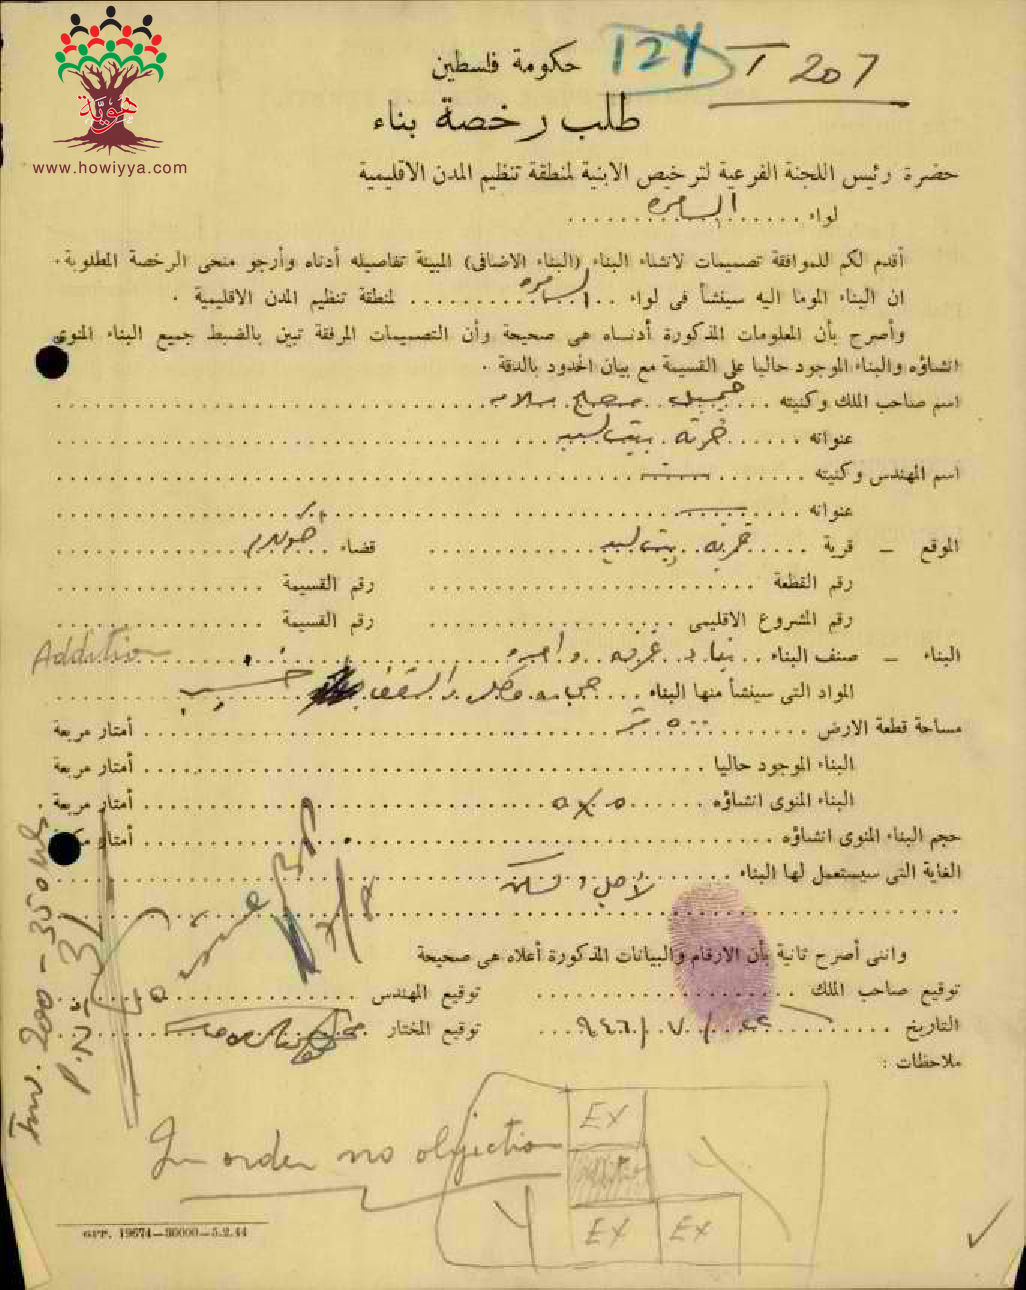 هويّة
www.howiyya.com
127 T 207
حكومة فلسطين
طلب رخصة بناء
حضرة رئيس اللجنة الفرعية لترخيص الابنية لمنطقة تنظيم المدن الاقليمية
لواء السامره
أقدم لكم للموافقة تصميمات لانشاء البناء (البناء الاضافى) المبينة تفاصيله أدناه وأرجو منحى الرخصة المطلوبة.
ان البناء الموما اليه سينشأ فى لواء السامره لمنطقة تنظيم المدن الاقليمية .
وأصرح بأن المعلومات المذكورة أدناه هى صحيحة وأن التصميمات المرفقة تبين بالضبط جميع البناء المنوى
انشاؤه والبناء الموجود حاليا على القسيمة مع بيان الحدود بالدقة .
اسم صاحب الملك وكنيته جميل مصلح سلامه
عنوانه خربة بيت لسيد
اسم المهندس وكنيته
عنوانه
الموقع — قرية خربة بيت لسيد قضاء طولكرم
رقم القطعة رقم القسيمة
رقم المشروع الاقليمى رقم القسيمة
البناء — صنف البناء بناء غرفه واحده Addition
المواد التى سينشأ منها البناء حجاره وكلس والسقف خشب
مساحة قطعة الارض ٥٠٠ أمتار مربعة
البناء الموجود حاليا أمتار مربعة
البناء المنوى انشاؤه ٥×٥ أمتار مربعة .
حجم البناء المنوى انشاؤه أمتار
الغاية التى سيستعمل لها البناء لأجل السكن
وانى أصرح ثانية بأن الارقام والبيانات المذكورة أعلاه هى صحيحة
توقيع صاحب الملك توقيع المهندس
التاريخ /٧/٩٤٦ توقيع المختار
ملاحظات :
Inv. 200 - 350 mls
In order no objection
EX
Addition
EX EX
GPP. 19674—30000—5.2.44